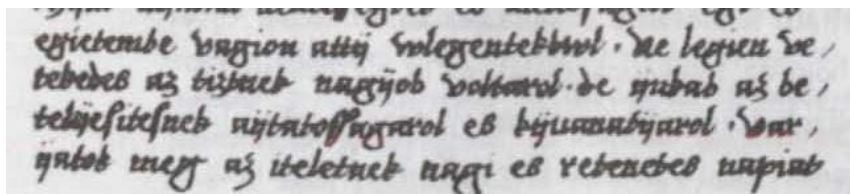 egietembe vagion attij velegentekbwl · Ne legien ve /
tekedes az tiztnek nagijob voltarol · de ijnkab az be /
telijesitesnek nijtatossagarol es kijuanatijarol · Var /
ijatok meg az iteletnek nagi es retenetes napiat